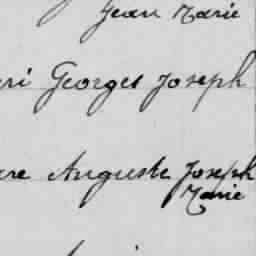 Jean Marie
ri Georges Joseph
re Auguste Joseph
Marie